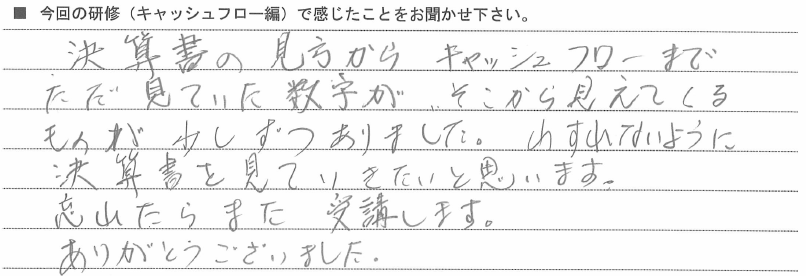 ■ 今回の研修（キャッシュフロー編）で感じたことをお聞かせ下さい。
決算書の見方から キャッシュフローまで
ただ見ていた数字が、そこから見えてくる
ものが少しずつありました。わすれないように
決算書を見ていきたいと思います。
忘れたらまた 受講します。
ありがとうございました。